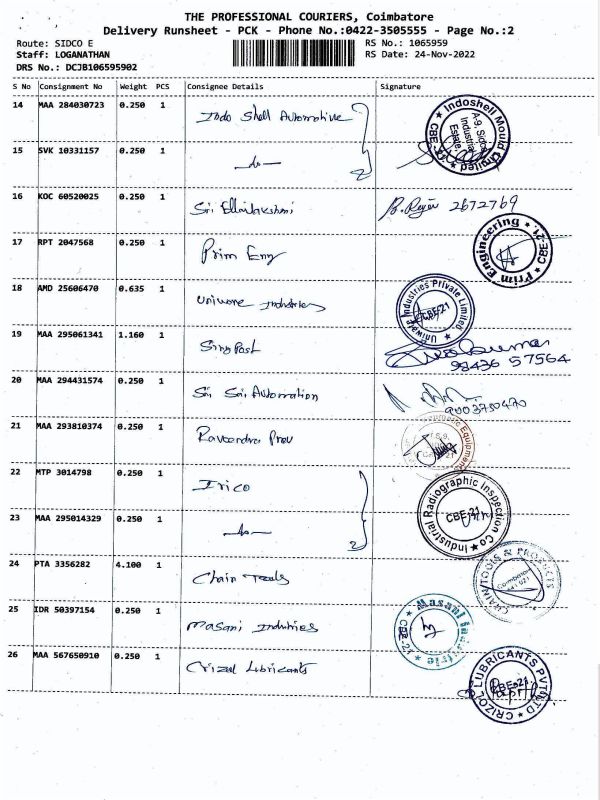 THE PROFESSIONAL COURIERS, Coimbatore
Delivery Runsheet - PCK - Phone No.:0422-3505555 - Page No.:2
Route: SIDCO E RS No.: 1065959
Staff: LOGANATHAN RS Date: 24-Nov-2022
DRS No.: DCJB106595902
S No Consignment No Weight PCS Consignee Details Signature
14 MAA 284030723 0.250 1 Indo Shell Automotive
Indoshell Mould Limited CBE-21 A-9, Sidco Industrial Estate,
15 SVK 10331157 0.250 1 -do- 2
16 KOC 60520025 0.250 1 Sri 2672769
17 RPT 2047568 0.250 1 Prim Eng
Prim Engineering CBE-21
18 AMD 25606470 0.635 1 Industries
Industries Private Limited CBE-21
19 MAA 295061341 1.160 1
98436 57564
20 MAA 294431574 0.250 1 Sri Sri Automation
9003750470
21 MAA 293810374 0.250 1
Equipments
22 MTP 3014798 0.250 1 Irico
Industrial Radiographic Inspection Co CBE-21
23 MAA 295014329 0.250 1 -do- 2
24 PTA 3356282 4.100 1 Chain Tools
CHAINTOOLS & PRODUCTS Coimbatore 641 021
25 IDR 50397154 0.250 1 Masani Industries
Masani Industrie CBE-21
26 MAA 567650910 0.250 1 Crizol Lubricants
CRIZOL LUBRICANTS PVT LTD CBE-21